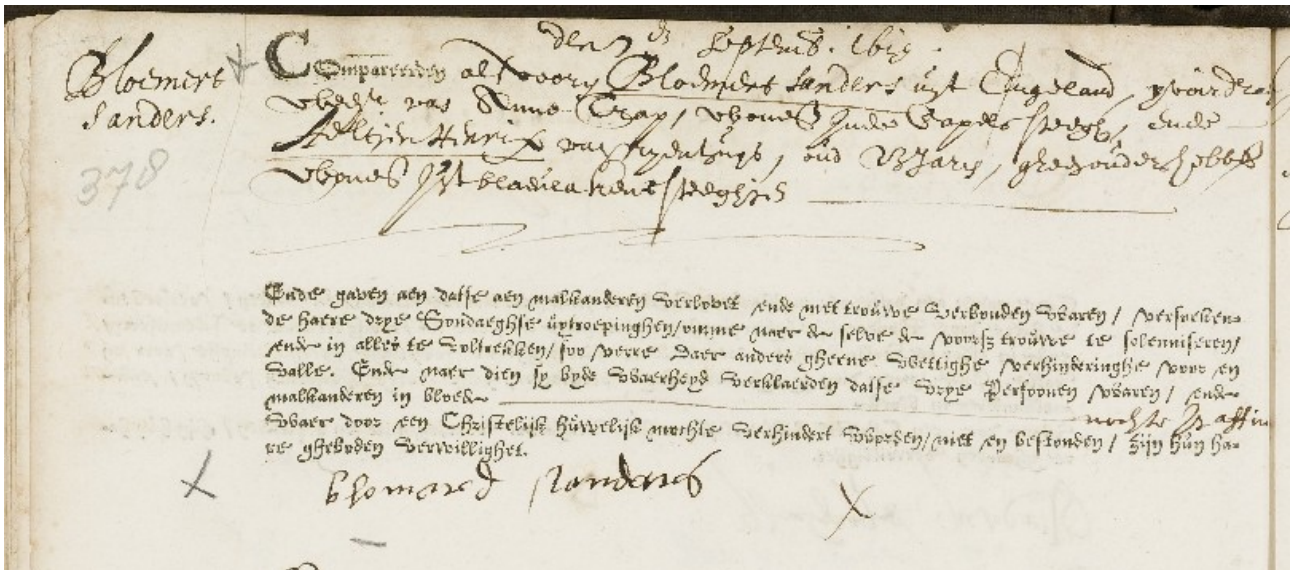 den 7 en Septemb. 1619.
Bloemers
Sanders.
378
Compareerden als vooren Bloemers Sanders uyt Engeland,
weduwr van Anne Trap, wonende inde Papels steegh, ende
Aeltjen Henrix van, oud Jaren, gheen ouders hebbende
wonende int steeghjen
Ende gaven aen datse aen malkanderen verlovet ende met trouwe verbonden waren / versoeken-
de haere drye Sondaeghse uytroepinghen / omme naer de selve de voorsz trouwe te solenniseren /
ende in alles te voltrekken / soo verre daer anders gheene wettighe verhinderinghe voor en
valle. Ende naer dien sy byde waerheyd verklaerden datse vrye Persoonen waren / ende
malkanderen in bloede
nochte in affini
waer door een Christelijk huwelijk mochte verhindert worden / niet en bestonden / zijn hun ha-
re gheboden verwillighet.
X
bhomared sanders
X